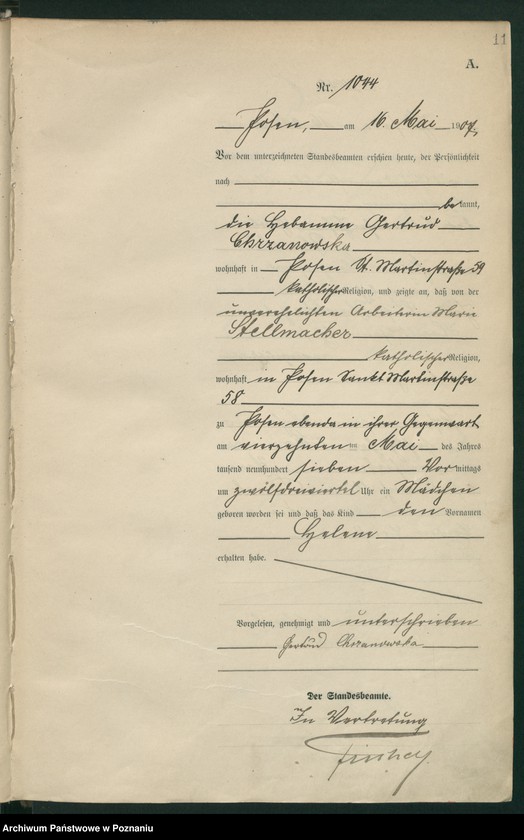 11
A.
Nr. 1044
Posen, am 16. Mai 1907
Vor dem unterzeichneten Standesbeamten erschien heute, der Persönlichkeit
nach
bekannt,
die Hebamme Gertrud
Chrzanowska
wohnhaft in Posen St. Martinstraße 59
katholischer Religion, und zeigte an, daß von der
unverehelichten Arbeiterin Marie
Stellmacher
katholischer Religion,
wohnhaft in Posen Sankt Martinstraße
58
zu Posen ebenda in ihrer Gegenwart
am vierzehnten ten Mai des Jahres
tausend neunhundert sieben Vor mittags
um zwölfdreiviertel Uhr ein Mädchen
geboren worden sei und daß das Kind den Vornamen
Helene
erhalten habe.
Vorgelesen, genehmigt und unterschrieben
Gertrud Chrzanowska
Der Standesbeamte.
In Vertretung
Archiwum Państwowe w Poznaniu